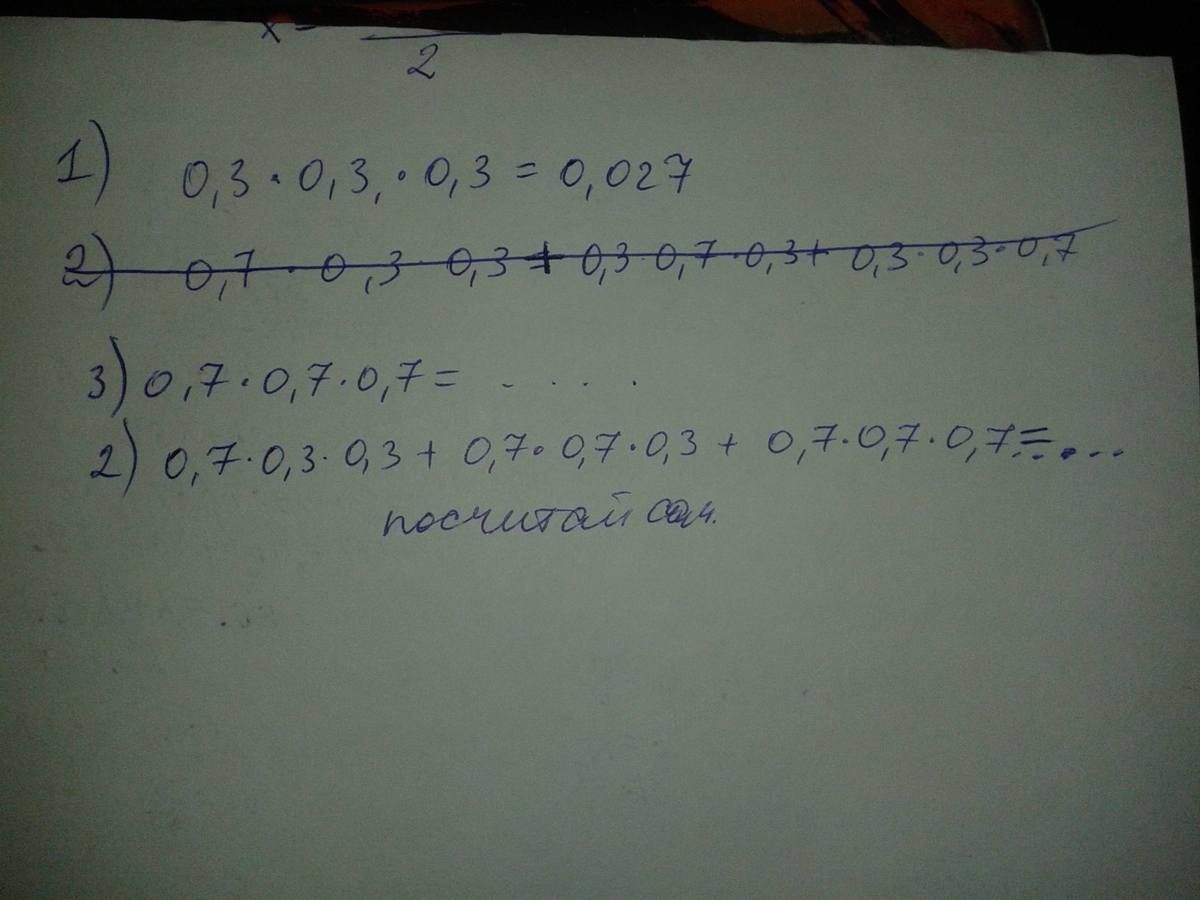 x =
2
1) 0,3 · 0,3, · 0,3 = 0,027
2) 0,7 · 0,3 · 0,3 + 0,3 · 0,7 · 0,3 + 0,3 · 0,3 · 0,7
3) 0,7 · 0,7 · 0,7 = . . . .
2) 0,7 · 0,3 · 0,3 + 0,7 · 0,7 · 0,3 + 0,7 · 0,7 · 0,7 = .....
посчитай сам.